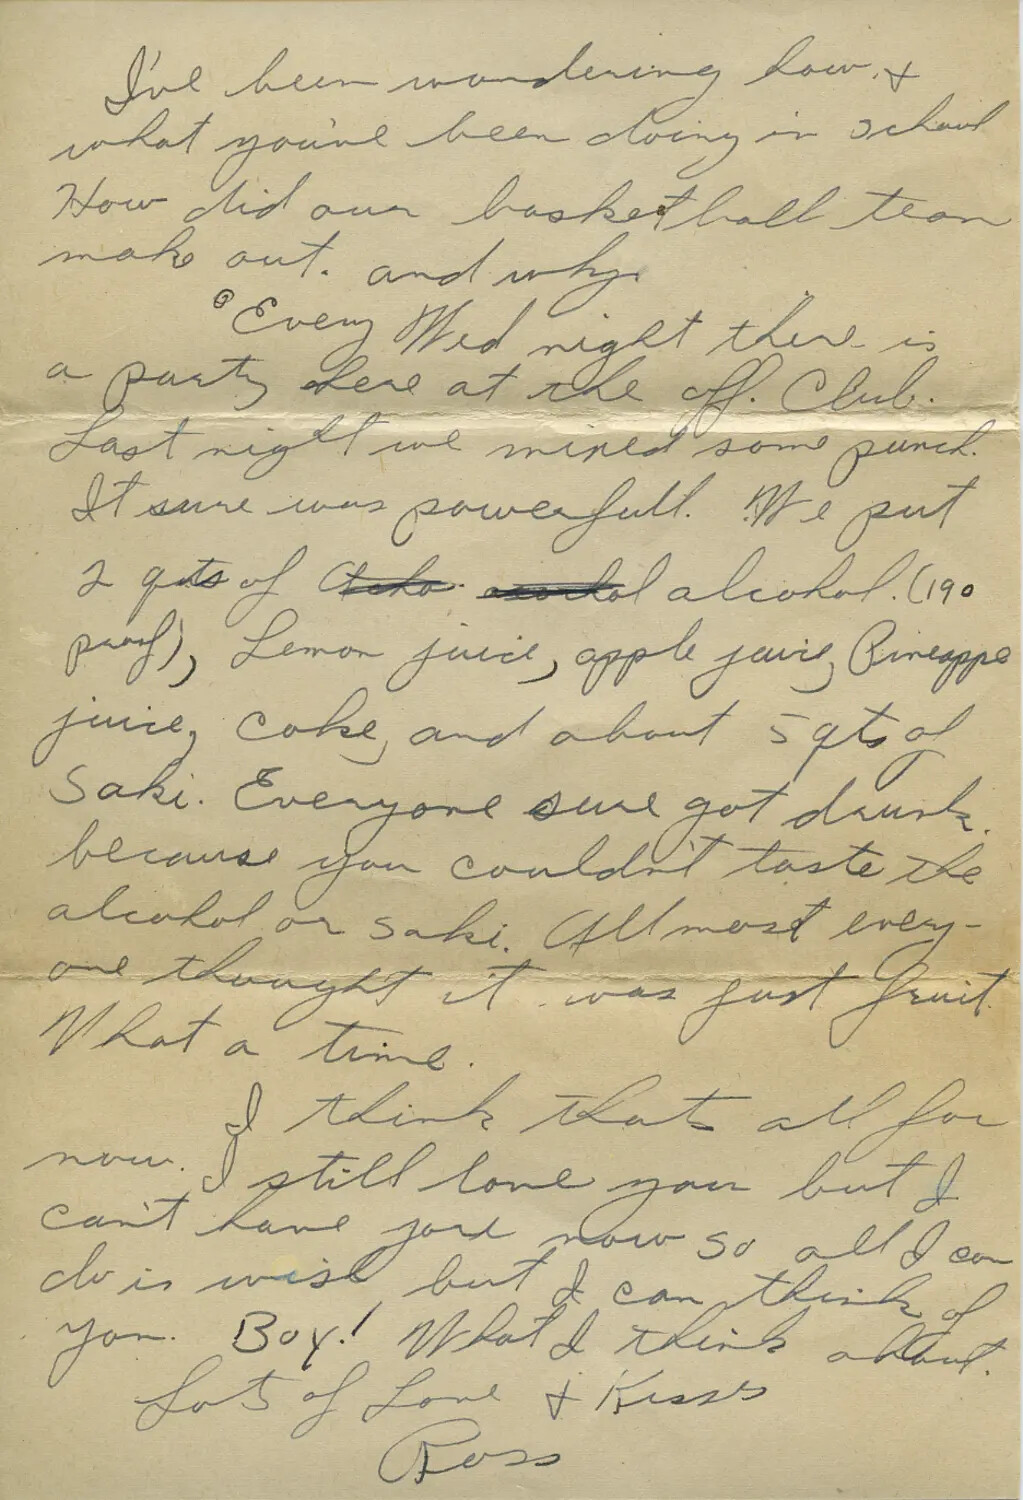 I've been wondering how &
what you've been doing in school
How did our basketball team
make out. and why.
Every Wed night there is
a party here at the off. Club.
Last night we mixed some punch.
It sure was powerfull. We put
2 qts of alcohol. (190
proof), Lemon juice, apple juice, Pineapple
juice, Coke, and about 5 qts of
Saki. Everyone sure got drunk.
because you couldn't taste the
alcohol or saki. Allmost every-
one thought it was just fruit.
What a time.
I think thats all for
now. I still love you but I
can't have you now so all I can
do is wish but I can think of
you. Boy! What I think about.
Lots of Love & Kisses
Ross